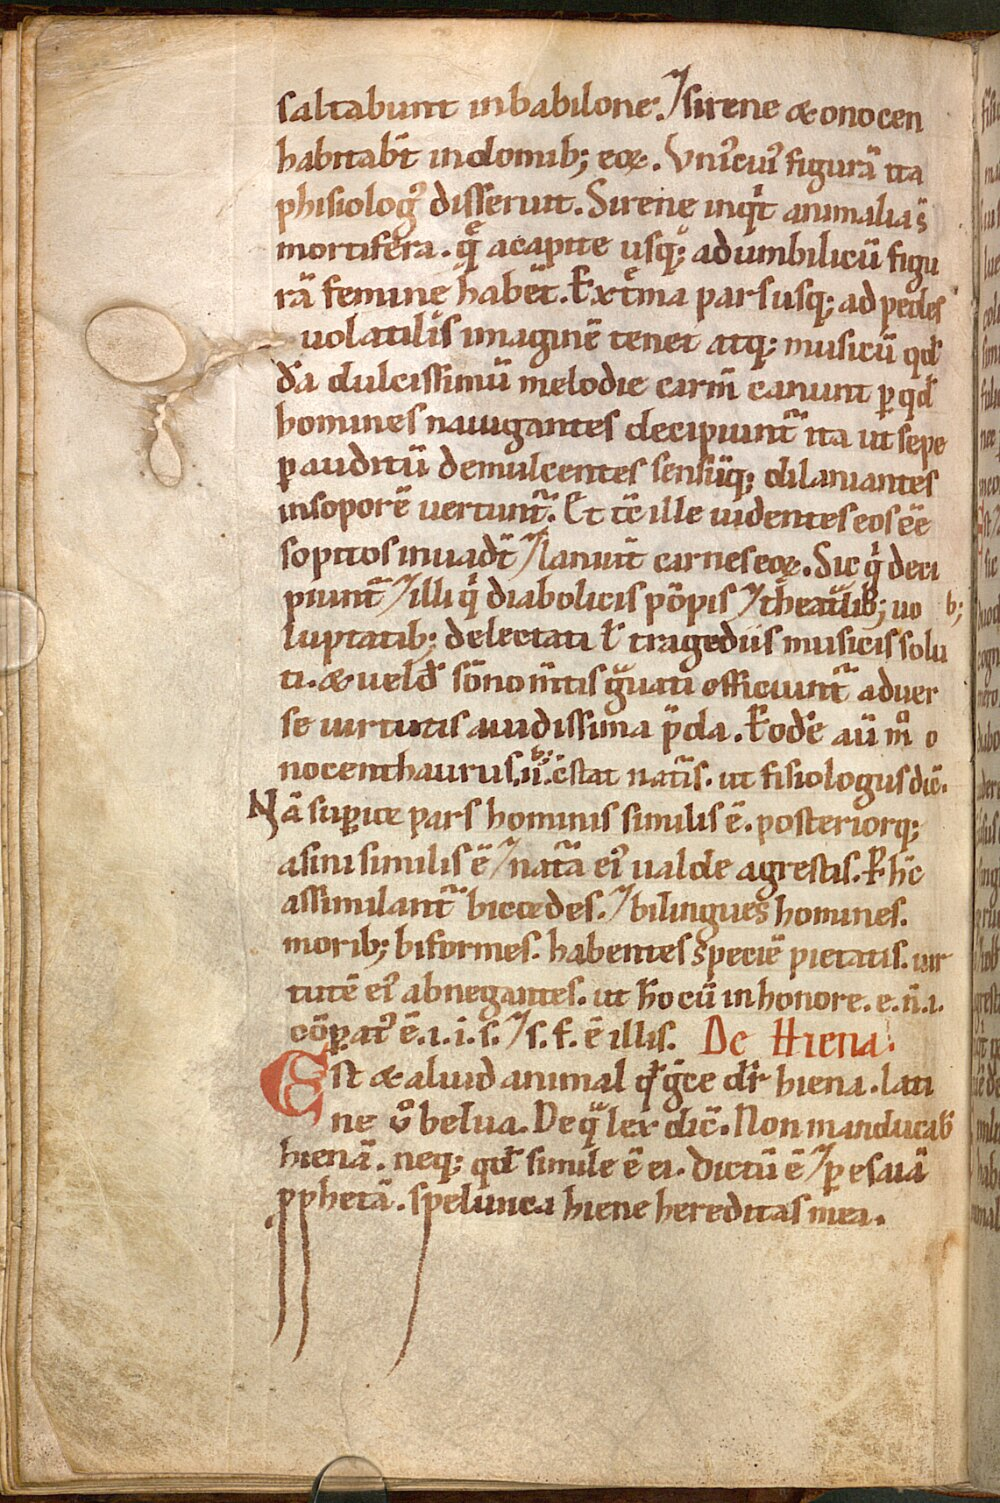 saltabunt inbabilone. ⁊ sirene & onocen
habitab̄t indomib; eoꝝ. Vniꝰcuiꝰ figurā ita
phisiologꝰ disseruit. Sirene inqͥt animalia s̄
mortifera. q̄ acapite usq; adumbilicū figu
rā femine habēt. Extͤma pars usq; ad pedes
uolatilis imaginē tenet atq; musicū qd̄
dā dulcissimū melodie carm̄ canunt ꝑ qd̄
homines nauigantes decipiunt᷑ ita ut sepe
ꝑ auditū demulcentes sensūq; dilaniantes
insoporē uertunt᷑. Et tc̄ ille uidentes eos ēē
sopitos inuadt̄ ⁊ laniāt carnes eoꝝ. Sic qͥ deci
piunt᷑ ⁊ illi qͥ diabolicis pōpis ⁊ theatͣlib; uo b;
luptatib; delectati ł tragediis musicis solu
ti. & uelud̄ sōno m̄tis gͣuati efficiunt᷑ aduer
se uirtutis auidissima p̄da. Eode aū m̊ o
nocenthaurus. ii. cstat natͥs. ut fisiologus dic̄.
Nā suꝑior pars hominis similis ē. posteriorq;
asini similis ē ⁊ natͣa eiꝰ ualde agrestis. P̄ hc̄
assimilant᷑ bicordes. ⁊ bilingues homines.
morib; biformes. habentes speciē pietatis. uir
tutē eiꝰ abnegantes. ut ho cū inhonore. e. n̄. i.
cōꝑatꝰ ē. i. i. s. ⁊ s. f. ē illis. De Hiena.
Est & aliud animal qd̄ gͤce dr̄ hiena. lati
ne ů belua. De qͣ lex dic̄. Non manducab̄
hienā. neq; qd̄ simile ē ei. dictū ē ⁊ ꝑ esaiā
ꝓphetā. spelunca hiene hereditas mea.